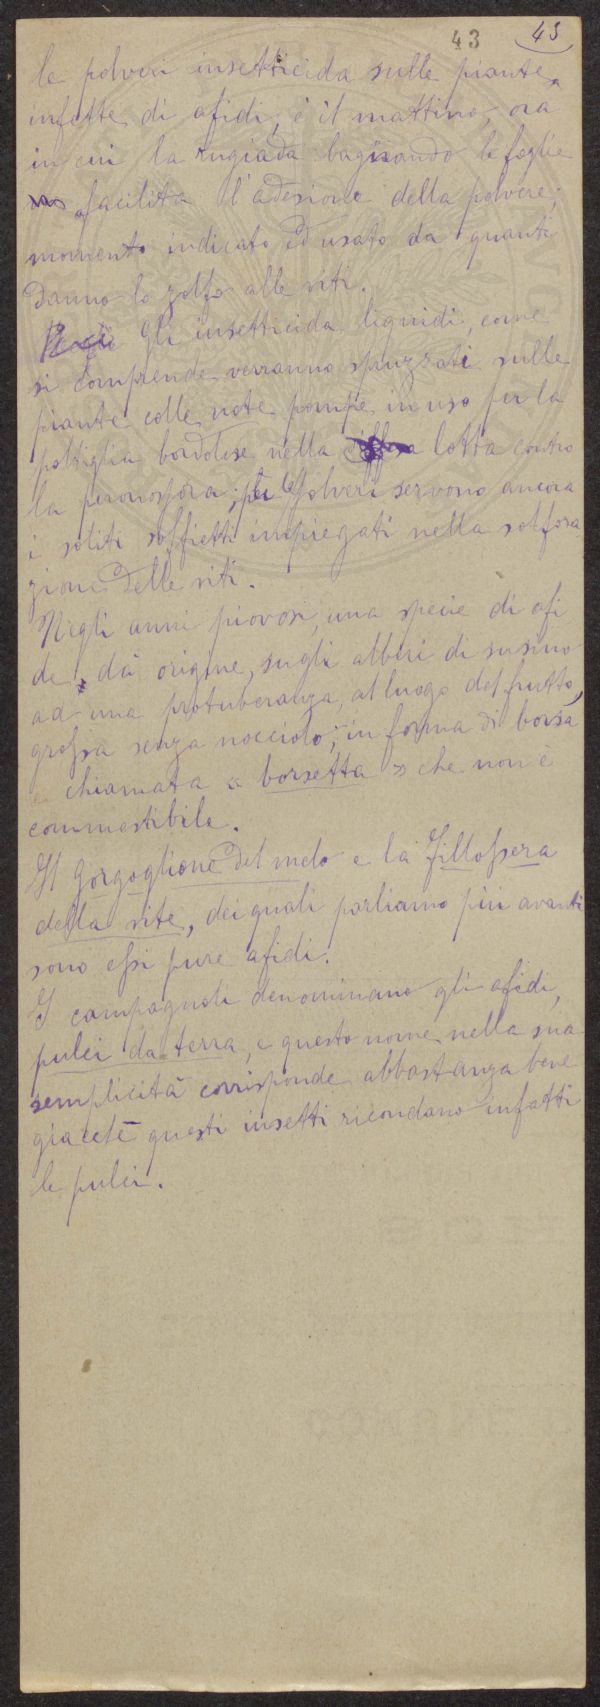 43 43
le polveri insetticida sulle piante
infette di afidi, è il mattino, ora
in cui la rugiada bagnando le foglie
facilita l'adesione della polvere;
momento indicato ed usato da quanti
danno lo zolfo alle viti.
Gli insetticida liquidi, come
si comprende verranno spruzzati sulle
piante colle note pompe in uso per la
poltiglia bordolese nella lotta contro
la peronospora; per le polveri servono ancora
i soliti soffietti impiegati nella solfora
zione delle viti.
Negli anni piovosi, una specie di afi
de, dà origine, sugli alberi di susino
ad una protuberanza, al luogo del frutto,
grossa senza nocciolo, in forma di borsa
chiamata « borsetta » che non è
commestibile.
Il Gorgoglione del melo e la Fillossera
della vite, dei quali parliamo più avanti
sono essi pure afidi.
I campagnoli denominano gli afidi,
pulci da terra, e questo nome nella sua
semplicità corrisponde abbastanza bene
giacchè questi insetti ricordano infatti
le pulci.